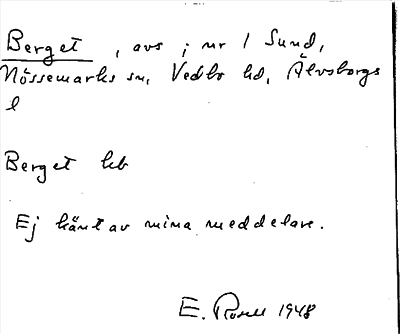 Berget, avs i nr 1 Sund,
Nössemarks sn, Vedbo hd, Älvsborgs
l
Berget hb
Ej känt av mina meddelare.
E. Rosell 1948